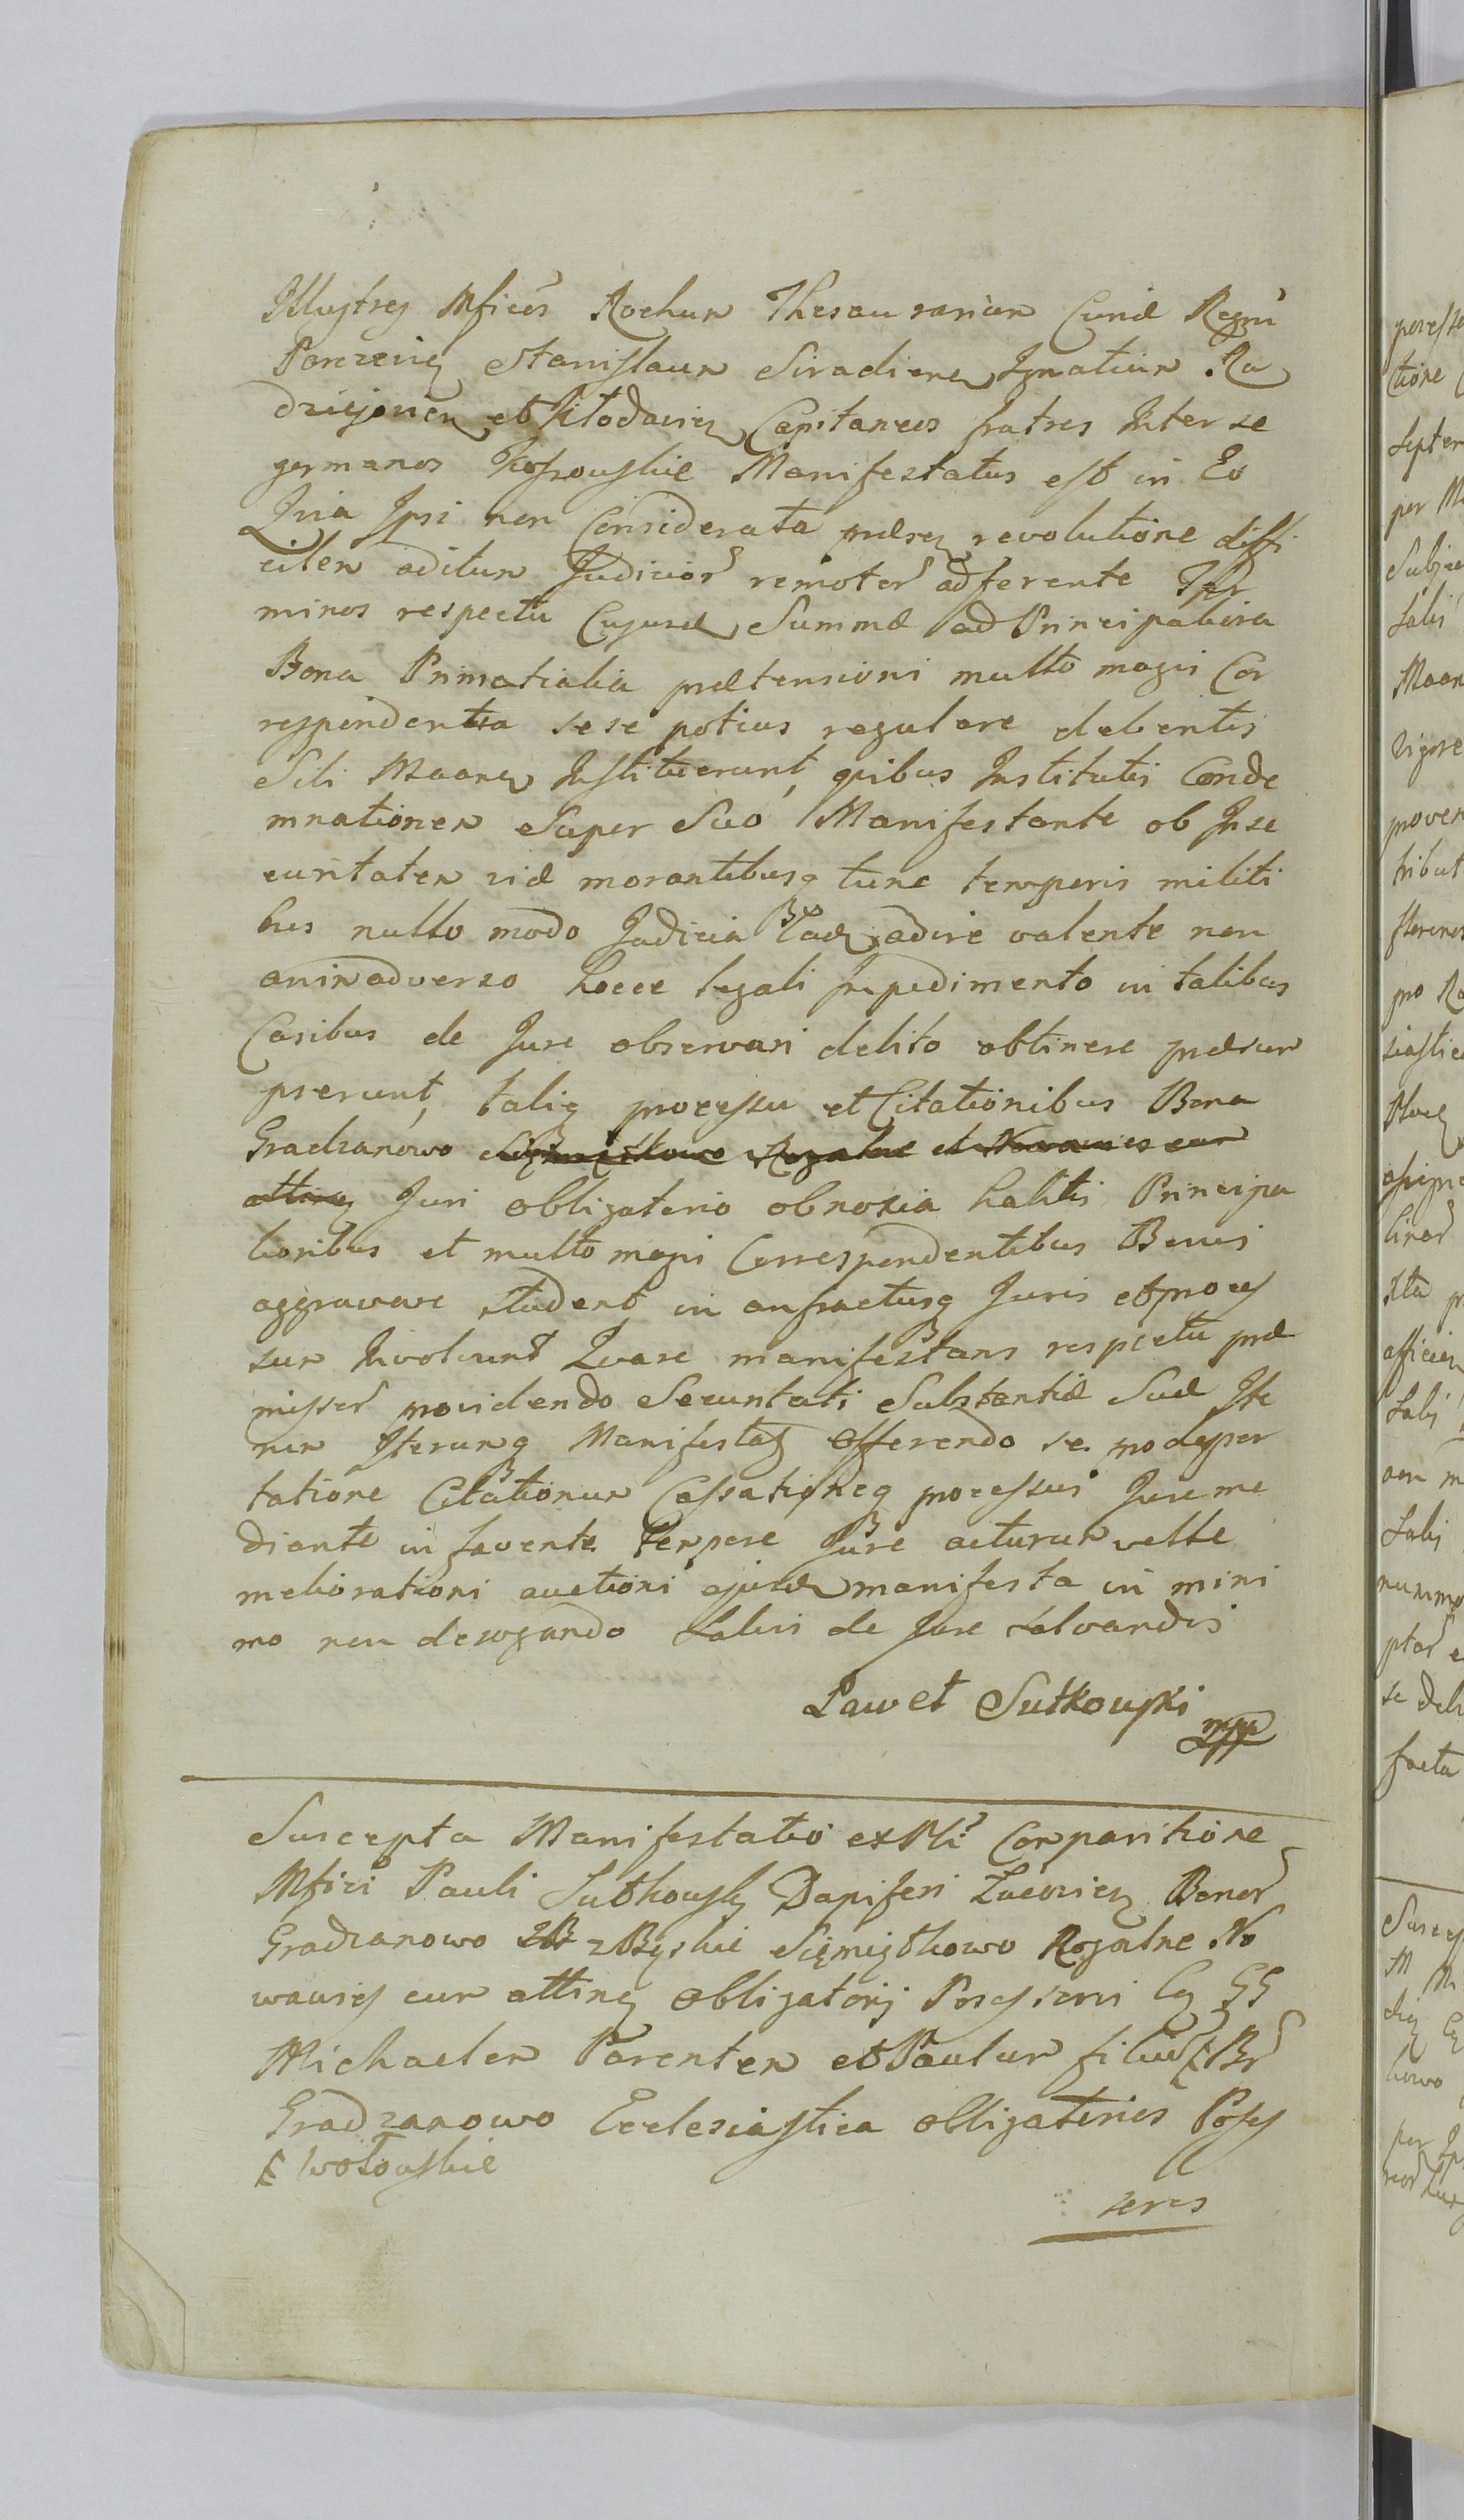 Illustres Mficos Rochum Thesaurarium Curiæ Regni
Parczevien Stanislaum Siradien Ignatium Ra
dziejovien et Kłodavien Capitaneos fratres Inter se
germanos Kossowskie Manifestatus est in Eo
Quia Ipsi non Considerata præsen revolutione diffi
cilem aditum Judicior remotor adferente Ter
minos respectu Cujusd Summæ ad Principaliora
Bona Primatialia prætensioni multo magis Cor
respondentia sese potius regulare debentis
Sibi Maanen Instituerunt, quibus Institutis Conde
mnationem Super Suo Manifestante ob Inse
curitatem viæ morantibusq tunc temporis militi
bus nullo modo Judicia adire valente non
animadverso hocce legali Impedimento in talibus
Casibus de Jure observari debito obtinere præsum
pserunt, taliq processu et Citationibus Bona
Gradzanowo Sięmiątkowo Rogalne et Nowawies cum
attinen Juri obligatorio obnoxia habitis Principa
lioribus et multo magis Correspondentibus Bonis
aggravare student in anfractusq Juris et proces
sum Involvunt Quare manifestans respectu præ
missor providendo Securitati Substantiæ Suæ Ite
rum Iterumq Manifestat Offerendo se pro depor
tatione Citationum Cassationeq processus Jure me
diante in favente tempore Jure acturum velle
meliorationi auctioni ejusd manifesta in mini
mo non derogando Salvis de Jure salvandis
Paweł Sutkowski
mpp
Suscepta Manifestatio ex Pli Comparitione
Mfici Pauli Sutkowsky Dapiferi Bonor
Gradzanowo zBęskie Sięmiątkowo Rogalne No
wawies cum attinen obligatorij Possessoris Cq GG
Michaelem Parentem et Paulum filium Br
Gradzanowo Ecclesiastica obligatorios Posses
Wołowskie
sores